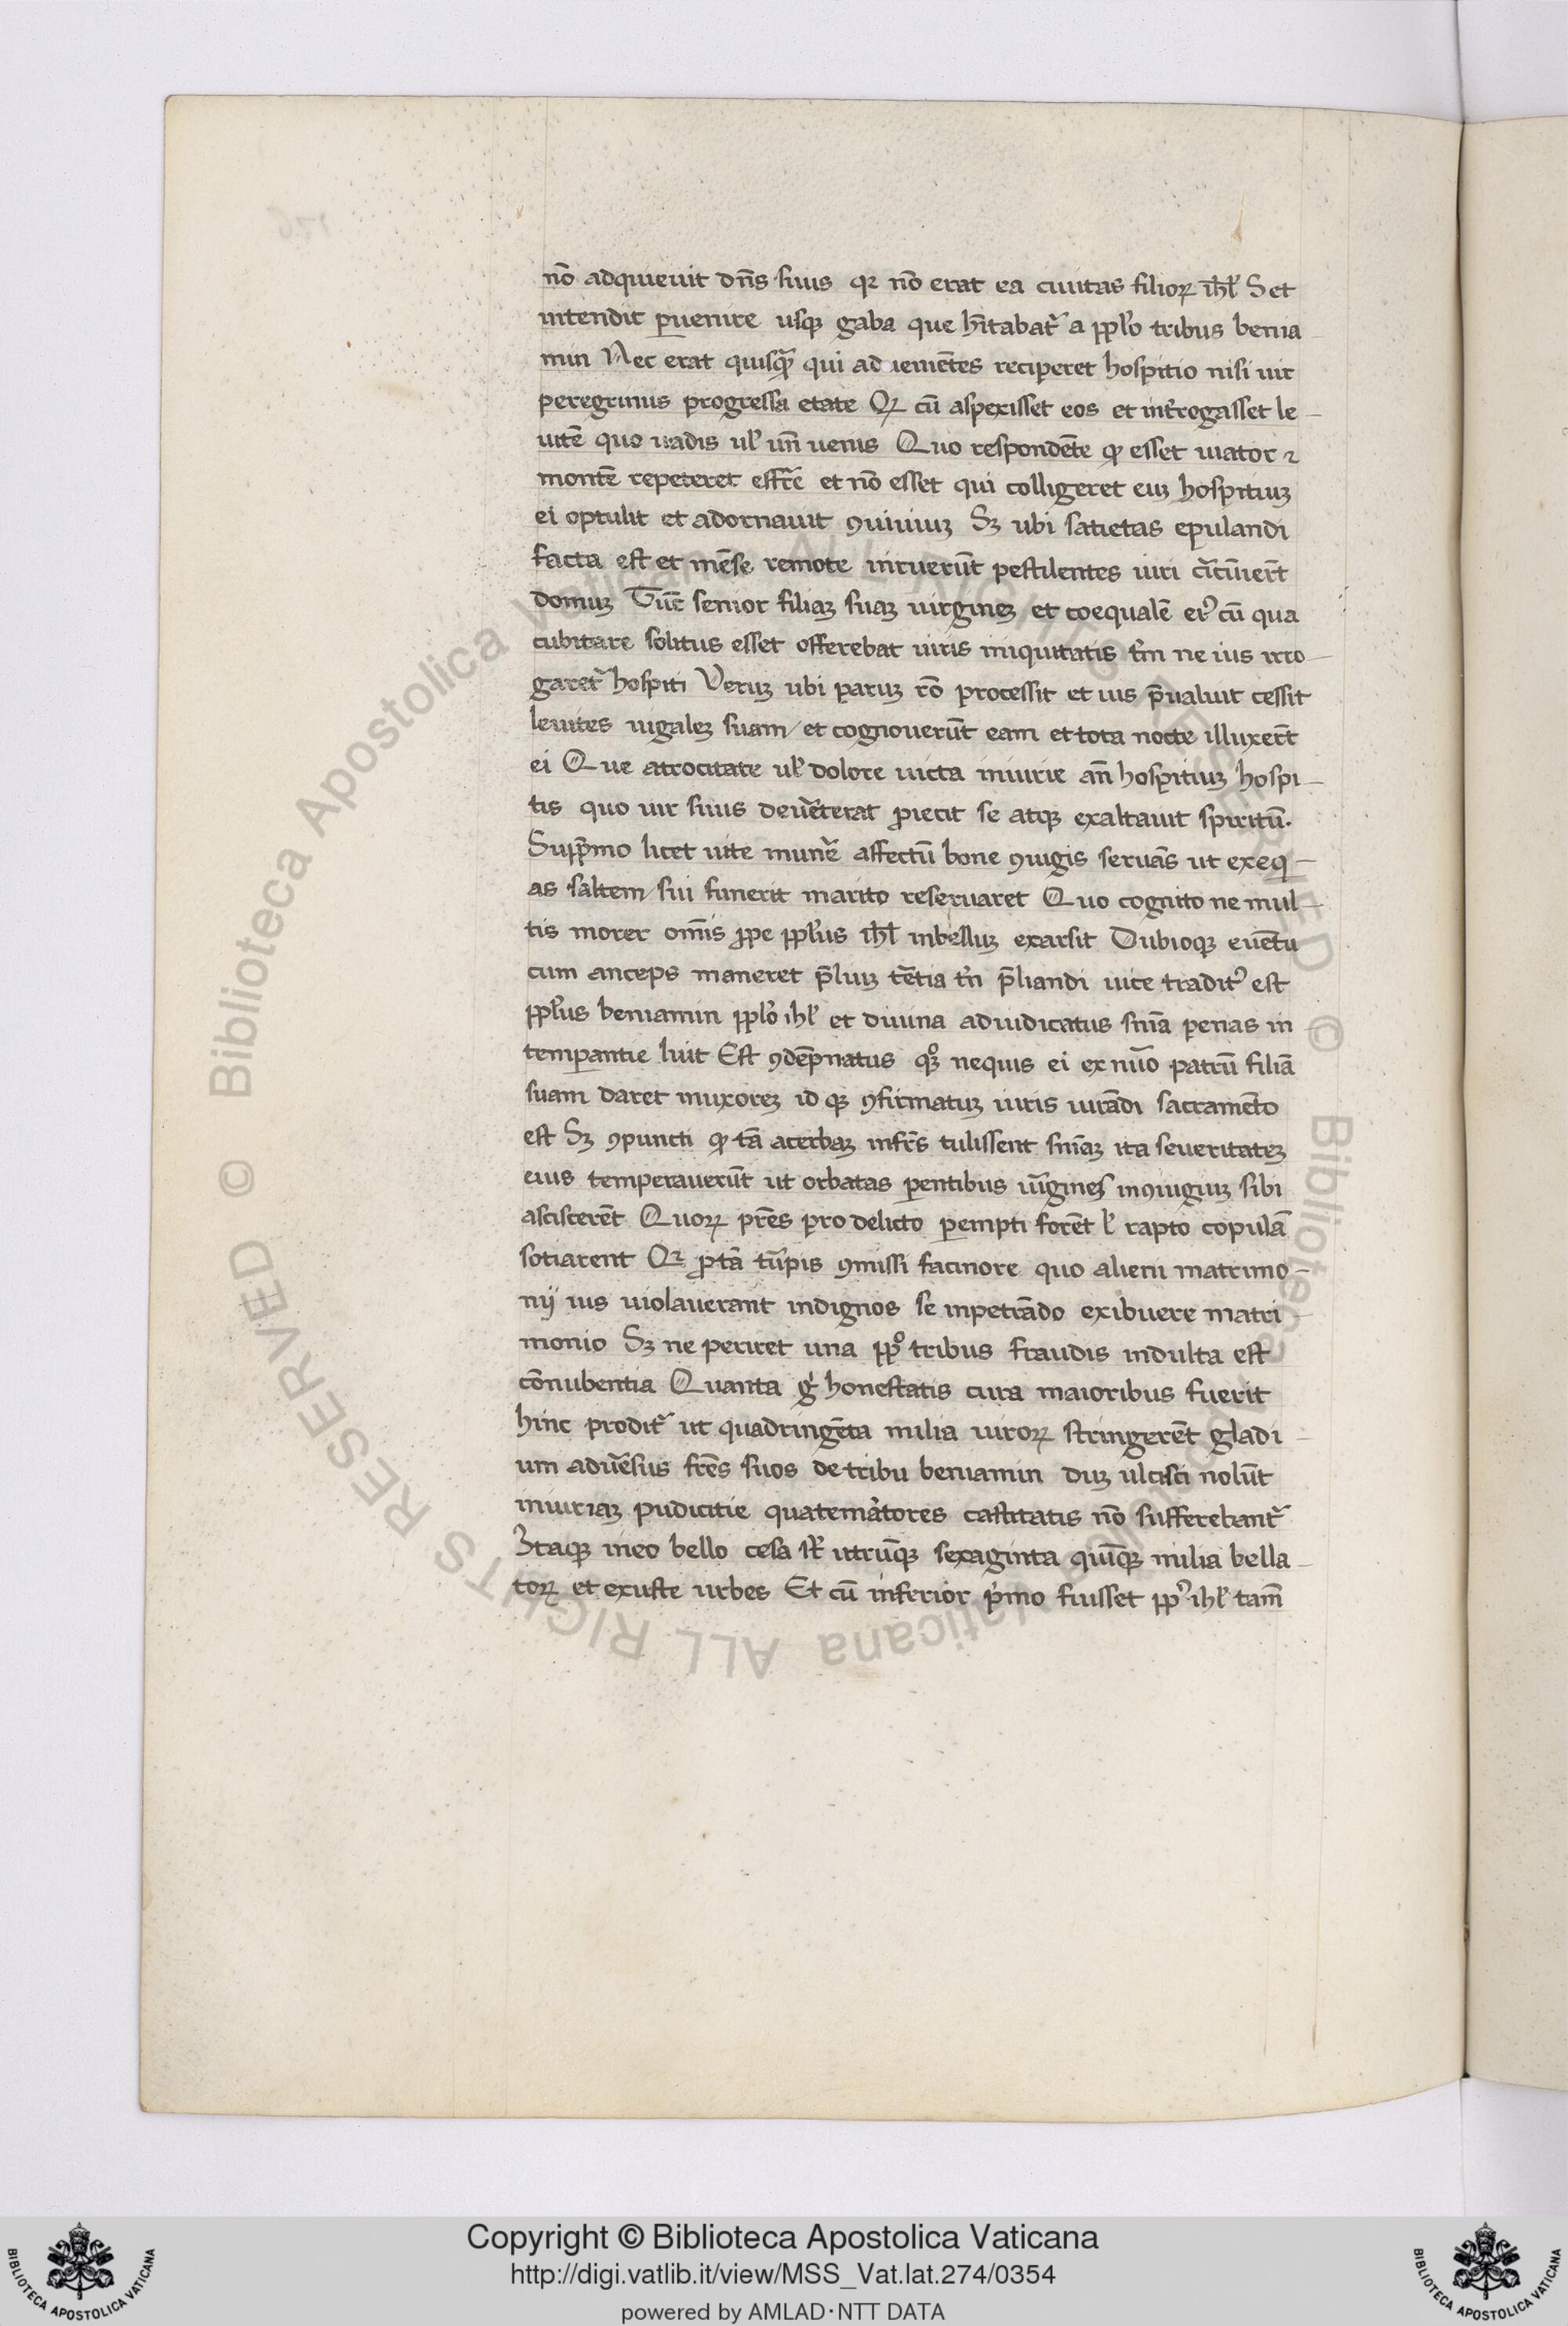 nō adquieuit dn̄s suus qꝛ nō erat ea ciuitas filioꝝ ih̄l Set
intendit ꝑuenire usqꝫ gaba que h̄itabat᷑ a pplo tribus benia
min Nec erat quisqᷓ qui ad uenиētes reciperet hospitio nisi uir
peregrinus progressa etate Qꝫ cū aspexisset eos et int̄rogasset le
uitē quo uadis ul̓ un̄ uenis Quo respondēte ꝙ esset uiator ⁊
montē repeteret effrē et nō esset qui colligeret euꝫ hospitiuꝫ
ei optulit et adornauit ꝯuiuiuꝫ Sꝫ ubi satietas epulandi
facta est et mēse remote irruerūt pestilentes uiri c̄icūiert̄
domuꝫ Tūc senior filiaꝫ suaꝫ uirgineꝫ et coequalē ei᷒ cū qua
cubitare solitus esset offerebat uiris iniquitatis tm̄ ne ius irro
garet᷑ hospiti Veruꝫ ubi paruꝫ rō processit et uis p̄ualuit cessit
leuites iugaleꝫ suam et cognouerūt eam et tota nocte illuxert̄
ei Que atrocitate ul̓ dolore uicta iniurie an̄ hospitiuꝫ hospi
tis quo uir suus deuēterat ꝓiecit se atqꝫ exaltauit spiritū.
Supp̄mo licet uite munē affectū bone ꝯiugis seruās ut exeq
as saltem sui funerit marito reseruaret Quo cognito ne mul
tis morer om̄is ꝓpe pplus ih̄l inbelluꝫ exarsit Dubioqꝫ euētu
cum anceps maneret p̄liuꝫ tētia tn̄ p̄liandi uice tradit᷒ est
pplus beniamin pplo ihl̓ et diuina adiudicatus sn̄ia penas in
temperantie luit Est ꝯdēpnatus qͦꝫ nequis ei ex nūo patrū filiā
suam daret inuxoreꝫ id qꝫ ꝯfirmatuꝫ iuris iurādi sacramēto
est Sꝫ ꝯpuncti ꝙ tā acerbaꝫ infrēs tulissent sn̄iaꝫ ita seueritateꝫ
eius temperauerūt ut orbatas ꝑentibus uīrgines inꝯiugiuꝫ sibi
asciscerēt Quoꝝ prēs pro delicto ꝑempti forēt l̓ rapto copulā
sotiarent Qꝛ ꝓ tā tūpis ꝯmissi facinore quo alieni matrimo
nij ius uiolauerant indignos se inpetrādo exibuere matri
monio Sꝫ ne periret una ppͦ tribus fraudis indulta est
cōnubentia Quanta gͥ honestatis cura maioribus fuerit
hinc prodit᷑ ut quadringēta milia uiroꝝ stringerēt gladi
um aduēsus frēs suos de tribu beniamin duꝫ ulcisci nolūt
iniuriaꝫ pudicitie quatematores castitatis nō sufferebant᷑
Itaqꝫ ineo bello cesa st̄ utrūqꝫ sexaginta quīqꝫ milia bella
toꝝ et exuste urbes Et cū inferior pͥmo fuisset pp᷒ ihl̓ tam̄
Copyright © Biblioteca Apostolica Vaticana
http://digi.vatlib.it/view/MSS_Vat.lat.274/0354
powered by AMLAD·NTT DATA